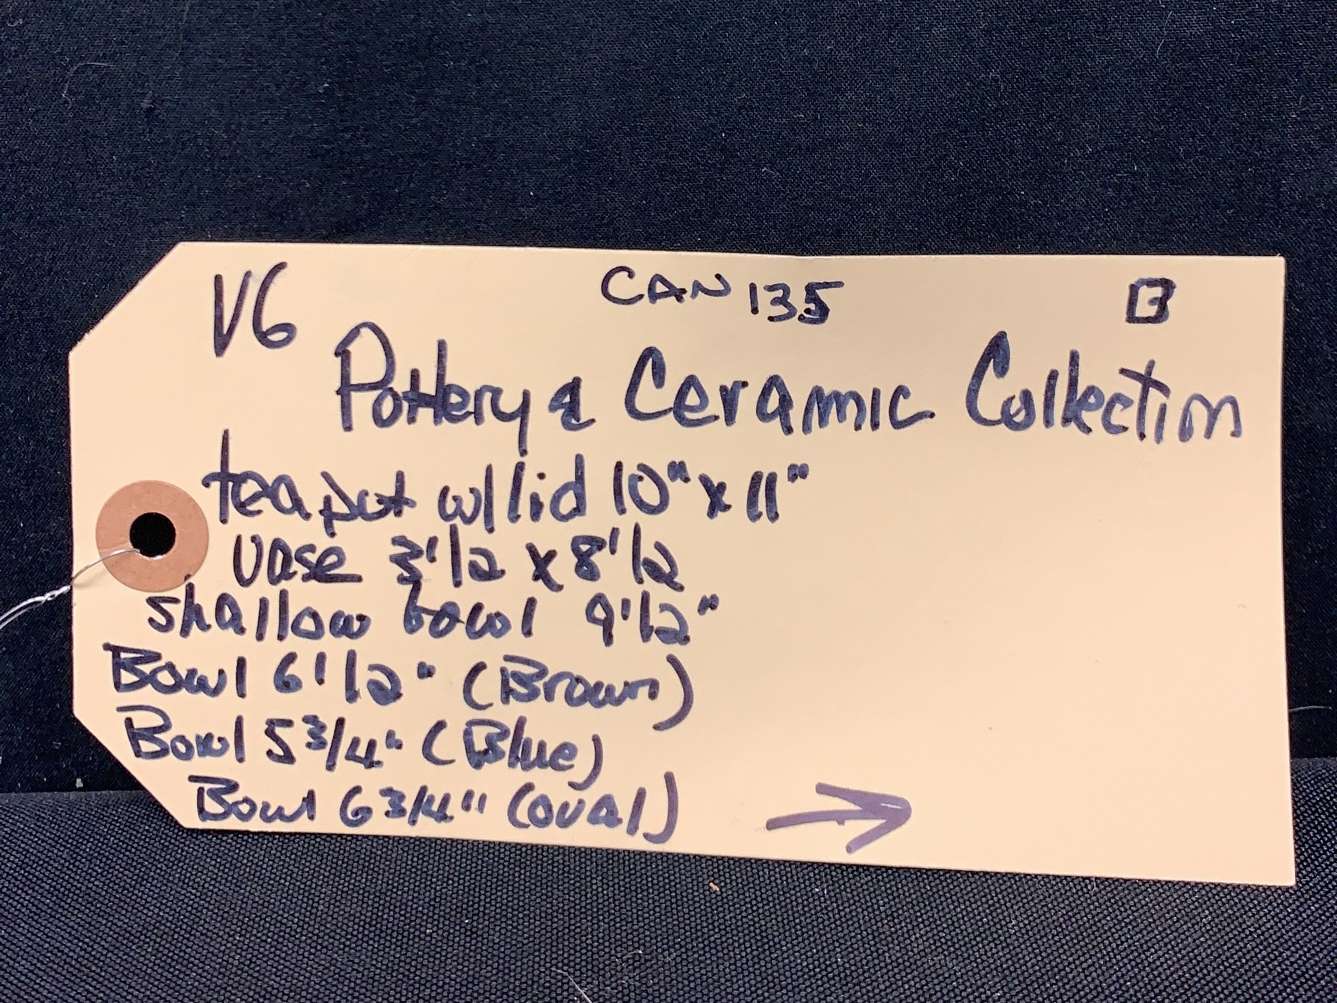 V6 CAN 135 B
Pottery & Ceramic Collection
teapot w/lid 10" x 11"
vase 3 1/2 x 8 1/2
shallow bowl 9 1/2"
Bowl 6 1/2" (Brown)
Bowl 5 3/4" (Blue)
Bowl 6 3/4" (oval)